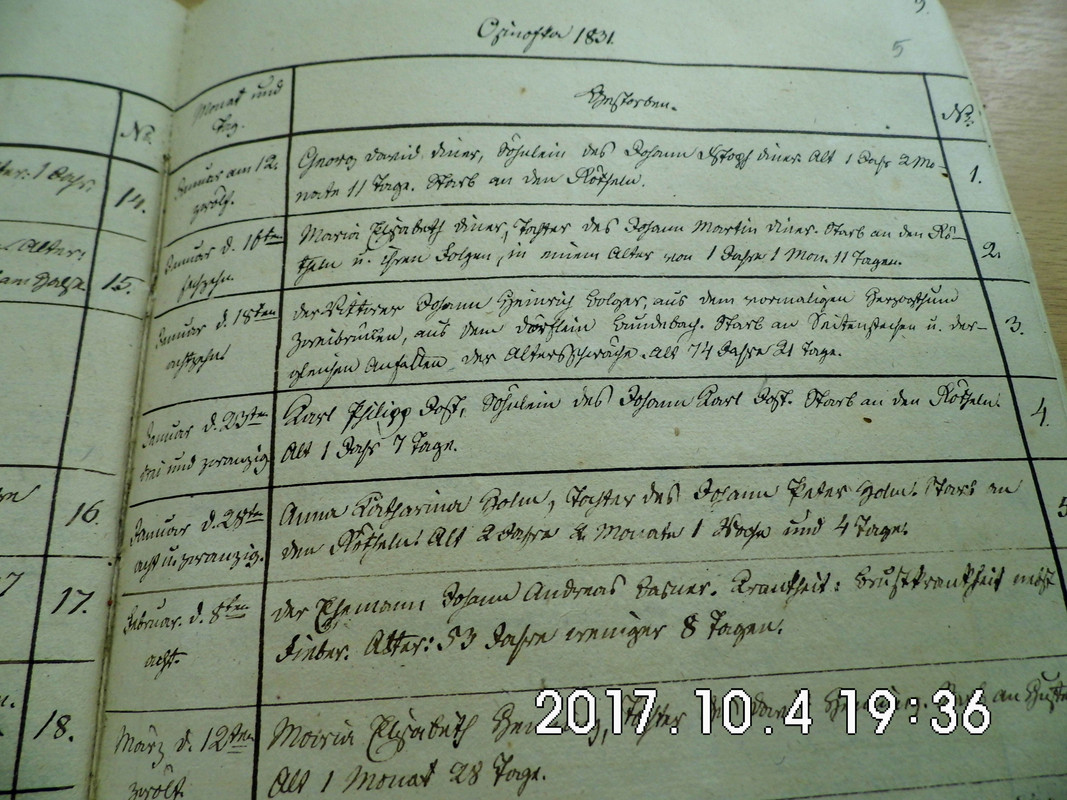 Osinofka 1831.
5
No.
Monat und
Tag.
Gestorben.
No.
14.
Januar am 12.
zwölf.
Georg David Diner, Söhnlein des Johann Diner. Alt 1 Jahr 2 Mo-
nate 11 Tage. Starb an den Rötheln.
1.
15.
Januar d. 16ten
sechzehn.
Maria Elisabeth Diner, Tochter des Johann Martin Diner. Starb an den Rö-
theln u. ihren Folgen, in einem Alter von 1 Jahre 1 Mon. 11 Tagen.
2.
Januar d. 18ten
achtzehn.
der Johann Heinrich aus dem vormaligen Herzogthum
Zweibrücken, aus dem Dörflein Starb an Seitenstechen u. der-
gleichen Anfällen der Altersschwäche. Alt 74 Jahre 21 Tage.
3.
Januar d. 23ten
drei und zwanzig
Karl Philipp Jost, Söhnlein des Johann Karl Jost. Starb an den Rötheln.
Alt 1 Jahr 7 Tage.
4.
16.
Januar d. 28ten
acht u. zwanzig.
Anna Katharina Holm, Tochter des Johann Peter Holm. Starb an
den Rötheln. Alt 2 Jahre 2 Monate 1 Woche und 4 Tage.
5
17.
Februar d. 8ten
acht.
der Ehemann Johann Andreas Krankheit: Brustkrankheit nebst
Fieber. Alter: 53 Jahre weniger 8 Tagen.
18.
März d. 12ten
zwölf.
Maria Elisabeth Tochter an Husten
Alt 1 Monat 28 Tage.
2017.10.4 19:36